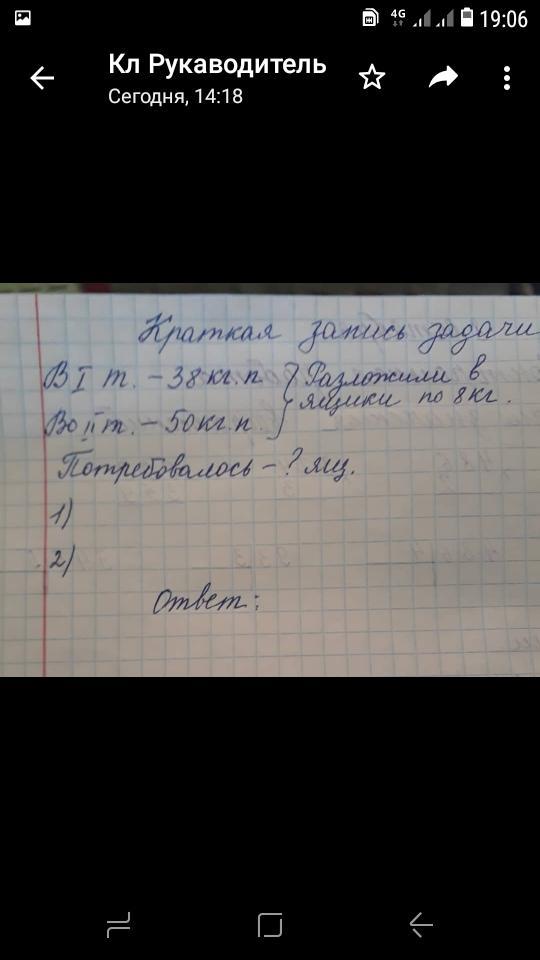 4G 19:06
Кл Рукаводитель
Сегодня, 14:18
Краткая запись задачи
В I т. – 38 кг. п. } Разложили в
ящики по 8 кг.
Во II т. – 50 кг. п.
Потребовалось – ? ящ.
1)
2)
Ответ: